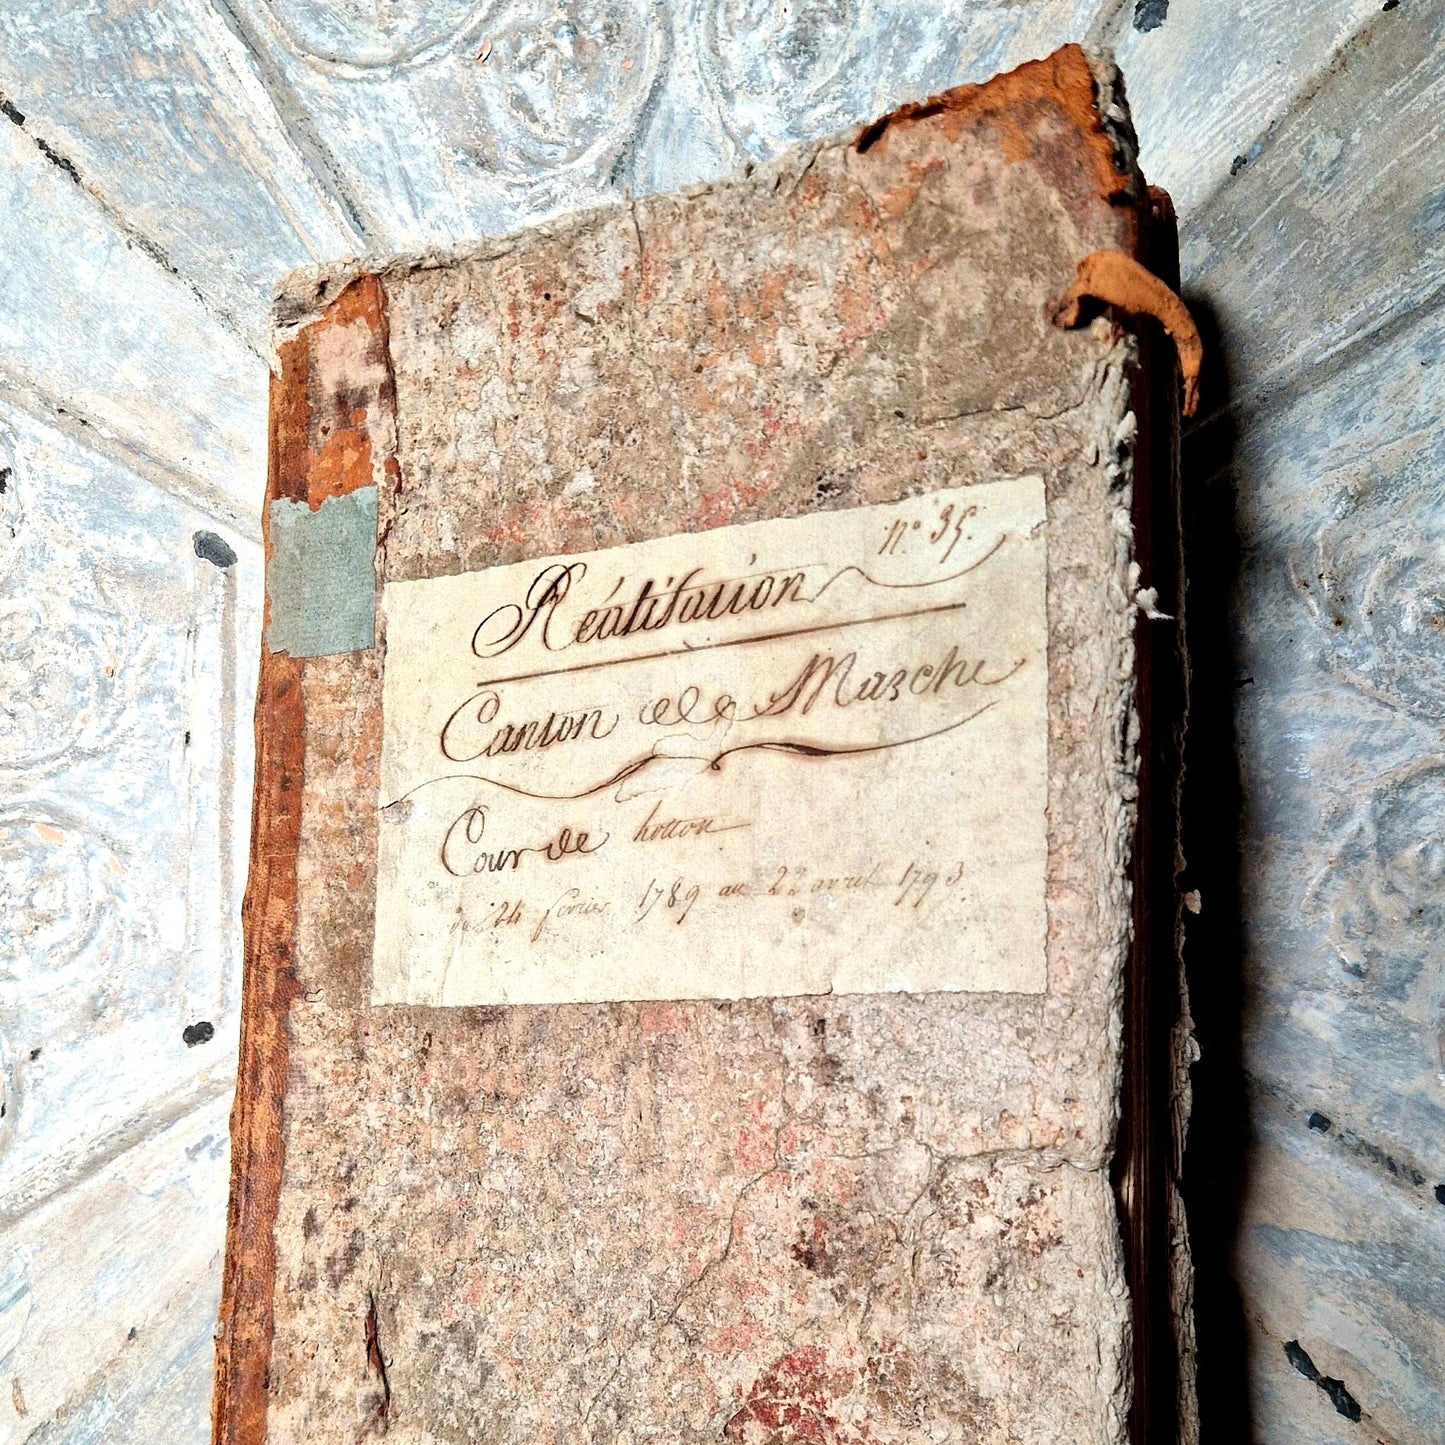 N.° 35.
Réalisation
Canton de Marche
Cour de hotton
du 24 février 1789 au 22 avril 1793.